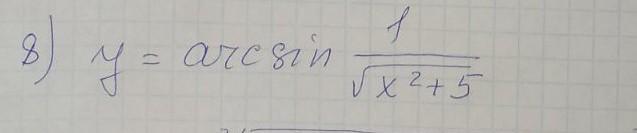 8) y = arcsin 1/√(x²+5)